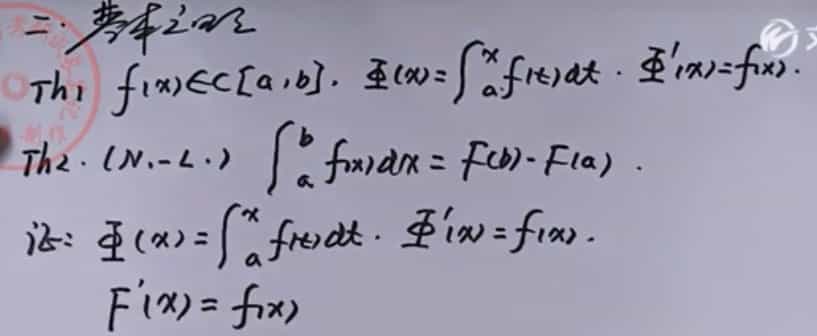 二. 基本定理
Th1 f(x)∈C[a,b]. Φ(x)=∫ₐˣ f(t)dt. Φ'(x)=f(x).
Th2. (N.-L.) ∫ₐᵇ f(x)dx = F(b)-F(a).
证: Φ(x)=∫ₐˣ f(t)dt. Φ'(x)=f(x).
F'(x)=f(x)